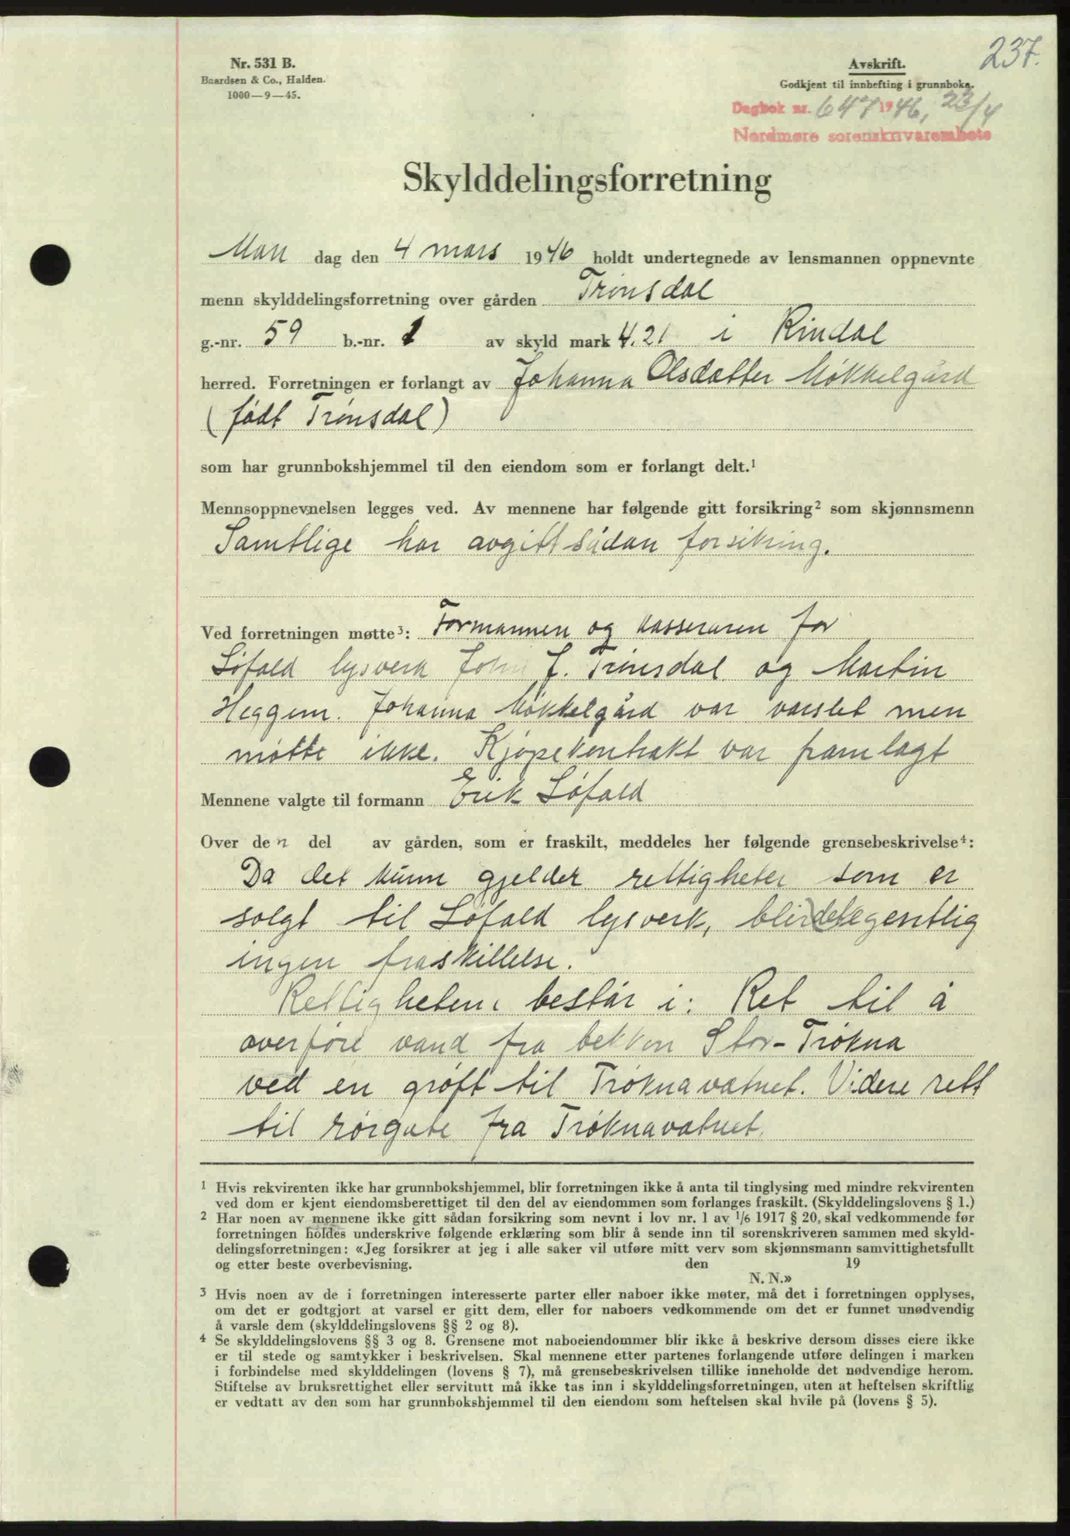 237.
Nr. 531 B.
Baardsen & Co., Halden.
1000—9—45.
Avskrift.
Godkjent til innhefting i grunnboka.
Dagbok nr. 647 1946, 23/4
Nordmøre sorenskriverembete
Skylddelingsforretning
Man dag den 4 mars 1946 holdt undertegnede av lensmannen oppnevnte
menn skylddelingsforretning over gården Trønsdal
g.-nr. 59 b.-nr. 1 av skyld mark 4.21 i Rindal
herred. Forretningen er forlangt av Johanna Olsdatter Møkkelgård
(født Trønsdal)
som har grunnbokshjemmel til den eiendom som er forlangt delt.¹
Mennsoppnevnelsen legges ved. Av mennene har følgende gitt forsikring² som skjønnsmenn
Samtlige har avgitt sådan forsikring.
Ved forretningen møtte³: Formannen og kasseraren for
Løfald lysverk John J. Trønsdal og Martin
Heggem. Johanna Møkkelgård var varslet men
møtte ikke. Kjøpekontrakt var framlagt
Mennene valgte til formann Erik Løfald
Over den del av gården, som er fraskilt, meddeles her følgende grensebeskrivelse⁴:
Da det kunn gjelder rettigheter som er
solgt til Løfald lysverk, blir det egentlig
ingen fraskillelse.
Rettigheten består i: Ret til å
overføre vand fra bekken Stor-Trøkna
ved en grøft til Trøknavatnet. Videre rett
til rørgate fra Trøknavatnet.
¹ Hvis rekvirenten ikke har grunnbokshjemmel, blir forretningen ikke å anta til tinglysing med mindre rekvirenten
ved dom er kjent eiendomsberettiget til den del av eiendommen som forlanges fraskilt. (Skylddelingslovens § 1.)
² Har noen av mennene ikke gitt sådan forsikring som nevnt i lov nr. 1 av 1/6 1917 § 20, skal vedkommende før
forretningen holdes underskrive følgende erklæring som blir å sende inn til sorenskriveren sammen med skyld-
delingsforretningen: «Jeg forsikrer at jeg i alle saker vil utføre mitt verv som skjønnsmann samvittighetsfullt
og etter beste overbevisning. den 19
N. N.»
³ Hvis noen av de i forretningen interesserte parter eller naboer ikke møter, må det i forretningen opplyses,
om det er godtgjort at varsel er gitt dem, eller for naboers vedkommende om det er funnet unødvendig
å varsle dem (skylddelingslovens §§ 2 og 8).
⁴ Se skylddelingslovens §§ 3 og 8. Grensene mot naboeiendommer blir ikke å beskrive dersom disses eiere ikke
er til stede og samtykker i beskrivelsen. Skal mennene etter partenes forlangende utføre delingen i marken
i forbindelse med skylddelingen (lovens § 7), må grensebeskrivelsen tillike inneholde det nødvendige herom.
Stiftelse av bruksrettighet eller servitutt må ikke tas inn i skylddelingsforretningen, uten at heftelsen skriftlig
er vedtatt av den som har grunnbokshjemmel til den eiendom som heftelsen skal hvile på (lovens § 5).